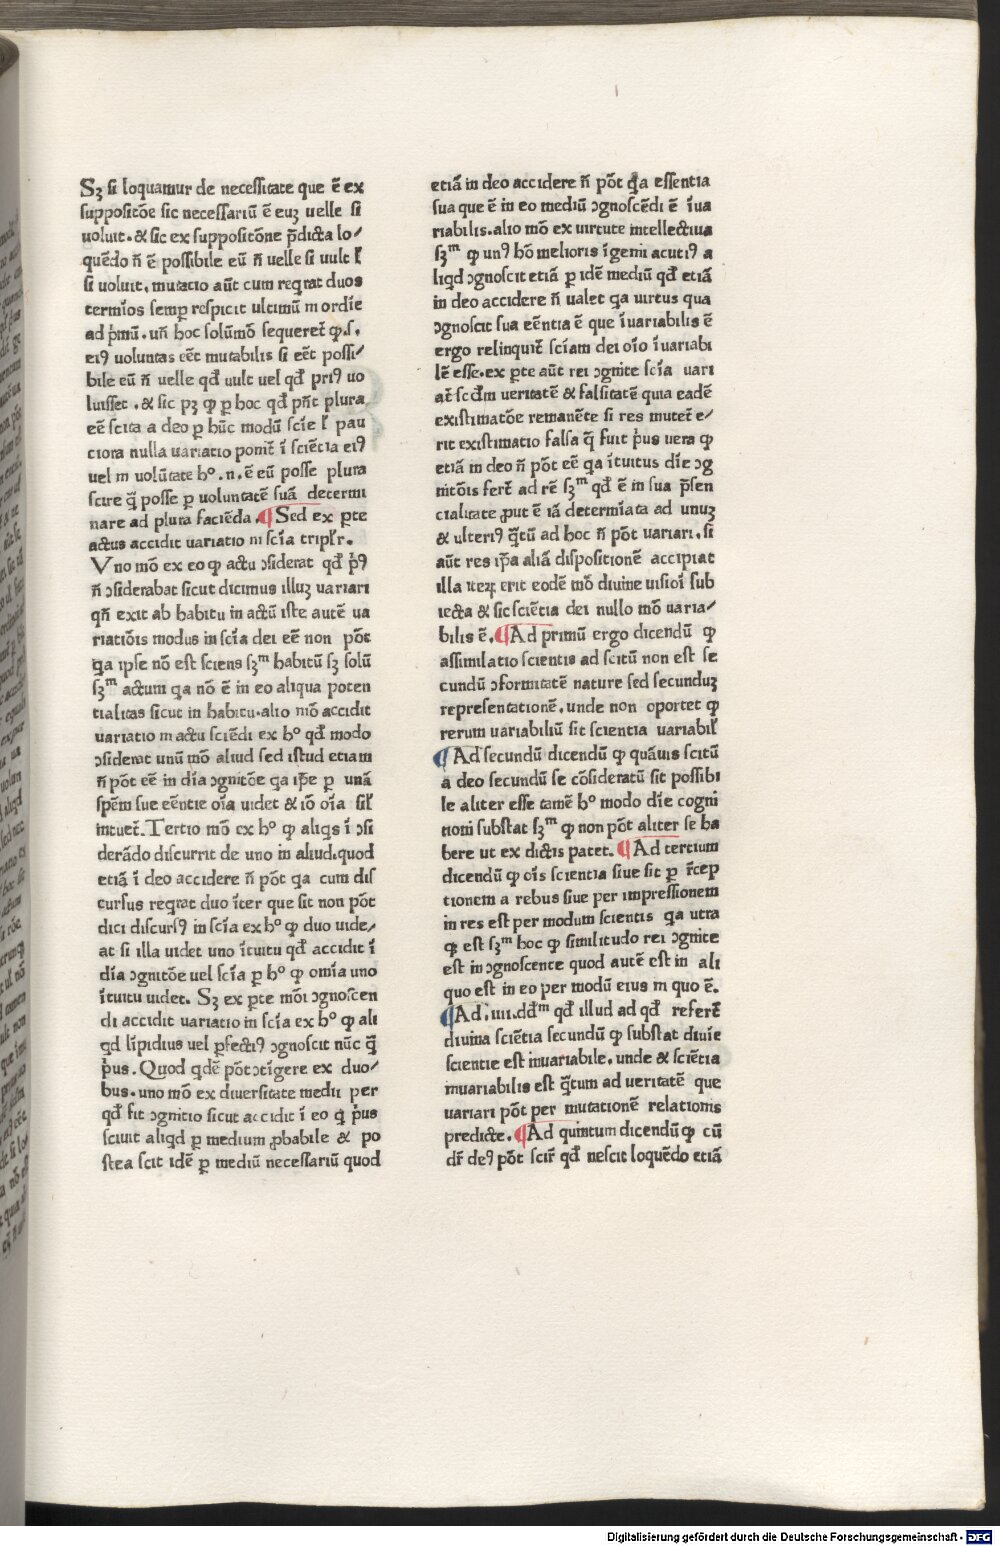 Sꝫ si loquamur de necessitate que ē ex
suppositōe sic necessariū ē euꝫ uelle si
uoluit. & sic ex suppositōne p̄dicta lo⸗
quēdo n̄ ē possibile eū n̄ uelle si uult ł
si uoluit, mutatio aūt cum reqrat duos
termīos semꝑ respicit ultimū in ordīe
ad pͥmū. un̄ hoc solūmō sequeret̄ ꝙ.s.
eiꝰ uoluntas eēt mutabilis si eēt possi⸗
bile eū n̄ uelle qd̄ uult uel qd̄ priꝰ uo
luisset. & sic pꝫ ꝙ ꝑ hoc qd̄ pn̄t plura
eē scita a deo ꝑ hūc modū scīe ł pau
ciora nulla uariatio ponit̄ ī sciētia eiꝰ
uel in volūtate hº.n. ē eū posse plura
scire q̄ posse ꝑ uoluntatē suā determi
nare ad plura faciēda. ¶ Sed ex ꝑte
actus accidit uariatio in scīa tripłr.
Vno mō ex eo ꝙ actu ↄsiderat qd̄ pͥꝰ
n̄ ↄsiderabat sicut dicimus illuꝫ uariari
qn̄ exit ab habitu in actū iste autē ua
riatiōis modus in scīa dei eē non pōt
qa ipse nō est sciens sꝫᵐ habitū sꝫ solū
sꝫᵐ actum qa nō ē in eo aliqua poten
tialitas sicut in habitu. alio mō accidit
uariatio in actu sciēdi ex hº qd̄ modo
ↄsiderat unū mō aliud sed istud etiam
n̄ pōt eē in dīa ↄgnitōe qa ip̄e ꝑ unā
spēm sue eēntie oīa uidet & iō oīa sił
intuet̄. Tertio mō ex hº ꝙ aliqs ī ↄsi
derādo discurrit de uno in aliud. quod
etiā ī deo accidere n̄ pōt qa cum dis
cursus reqrat duo īter que sit non pōt
dici discursꝰ in scīa ex hº ꝙ duo uide⸗
at si illa uidet uno ītuitu qd̄ accidit ī
dīa ↄgnitōe uel scīa ꝑ hº ꝙ omīa uno
ītuitu uidet. Sꝫ ex ꝑte mōi ↄgnoscen
di accidit uariatio in scīa ex hº ꝙ ali
qd līpidius uel ꝑfectiꝰ ↄgnoscit nūc q̄
pͥus. Quod qdē pōt ↄtīgere ex duo⸗
bus. uno mō ex diuersitate medii per
qd̄ fit ↄgnitio sicut accidit ī eo q pͥus
sciuit aliqd ꝑ medium ꝓbabile & po
stea scit idē ꝑ mediū necessariū quod
etiā in deo accidere n̄ pōt qa essentia
sua que ē in eo mediū ↄgnoscēdi ē īua
riabilis. alio mō ex uirtute intellectiua
sꝫᵐ ꝙ unꝰ hō melioris īgenii acutiꝰ a
liqd ↄgnoscit etiā ꝑ idē mediū qd̄ etiā
in deo accidere n̄ ualet qa uirtus qua
ↄgnoscit sua eēntia ē que īuariabilis ē
ergo relinquit̄ scīam dei oīo īuariabi
lē esse. ex ꝑte aūt rei ↄgnite scīa uari
at̄ scd̄m ueritatē & falsitatē quia eadē
existimatōe remanēte si res mutet̄ e⸗
rit existimatio falsa q̄ fuit pͥus uera ꝙ
etiā in deo n̄ pōt eē qa ītuitus dīe ↄg
nitōis fert̄ ad rē sꝫᵐ qd̄ ē in sua p̄sen
cialitate ꝓut ē iā determīata ad unuꝫ
& ulteriꝰ q̄tū ad hoc n̄ pōt uariari. si
aūt res ip̄a aliā dispositionē accipiat
illa iteꝝ erit eodē mō diuine uisioī sub
iecta & sic sciētia dei nullo mō uaria⸗
bilis ē. ¶ Ad primū ergo dicendū ꝙ
assimilatio scientis ad scitū non est se
cundū ↄformitatē nature sed secunduꝫ
representationē, unde non oportet ꝙ
rerum uariabiliū sit scientia uariabił
¶ Ad secundū dicendū ꝙ quāuis scitū
a deo secundū se cōsideratū sit possibi
le aliter esse tamē hº modo dīe cogni
tioni substat sꝫᵐ ꝙ non pōt aliter se ha
bere ut ex dictis patet. ¶ Ad tertium
dicendū ꝙ oīs scientia siue sit ꝑ r̄cep
tionem a rebus siue per impressionem
in res est per modum scientis qa utra
qꝫ est sꝫᵐ hoc ꝙ similitudo rei ↄgnite
est in ↄgnoscente quod autē est in ali
quo est in eo per modū eius in quo ē.
¶ Ad.iiii.dd̄ᵐ qd̄ illud ad qd̄ refert̄
diuina sciētia secundū ꝙ substat diuīe
scientie est inuariabile. unde & sciētia
inuariabilis est q̄tum ad ueritatē que
uariari pōt per mutationē relationis
predicte. ¶ Ad quintum dicendū ꝙ cū
dr̄ deꝰ pōt scir̄ qd̄ nescit loquēdo etiā
Digitalisierung gefördert durch die Deutsche Forschungsgemeinschaft - DFG